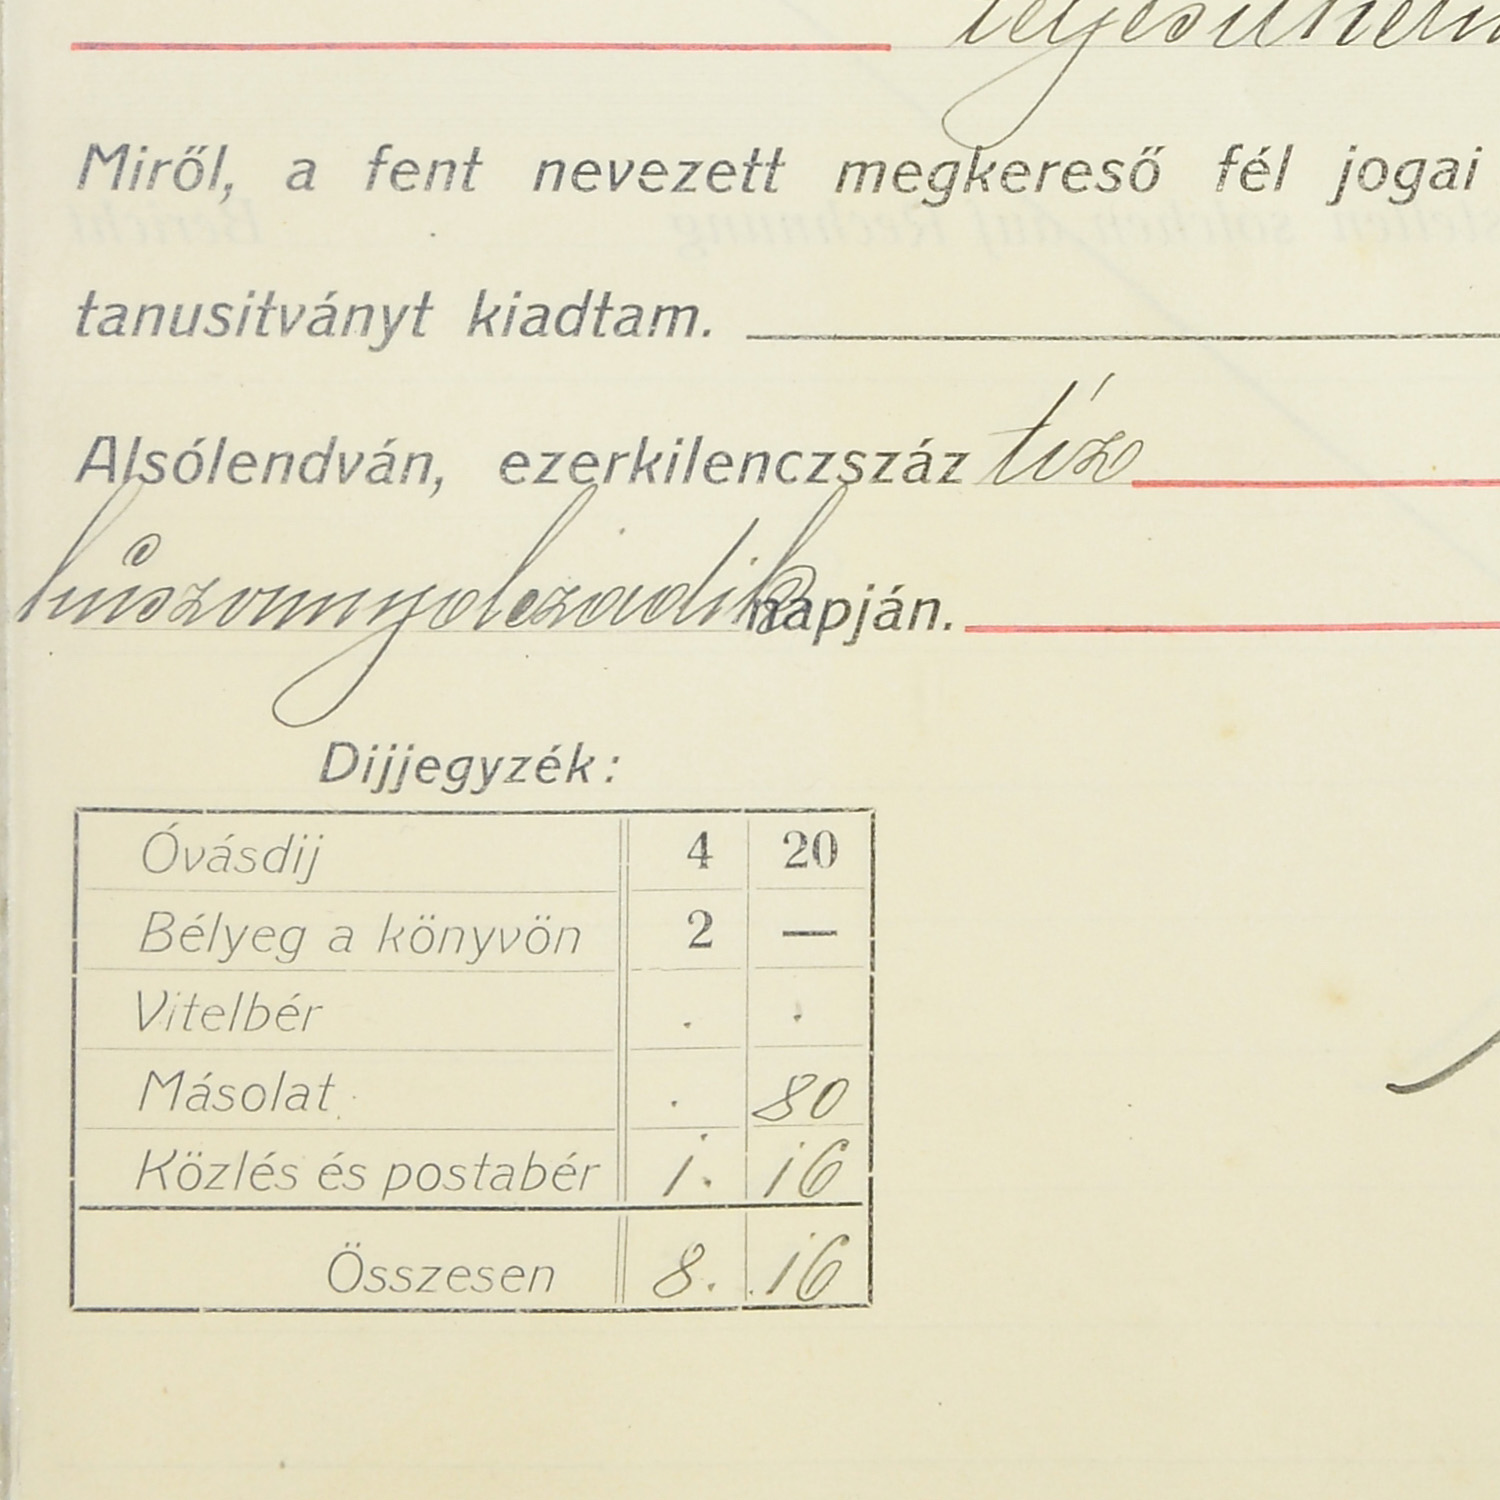 Miről, a fent nevezett megkereső fél jogai
tanusitványt kiadtam.
Alsólendván, ezerkilenczszáz tíz
húszonnyolczadik napján.
Dijjegyzék:
Óvásdij 4 20
Bélyeg a könyvön 2 —
Vitelbér . .
Másolat . 80
Közlés és postabér 1. 16
Összesen 8. 16